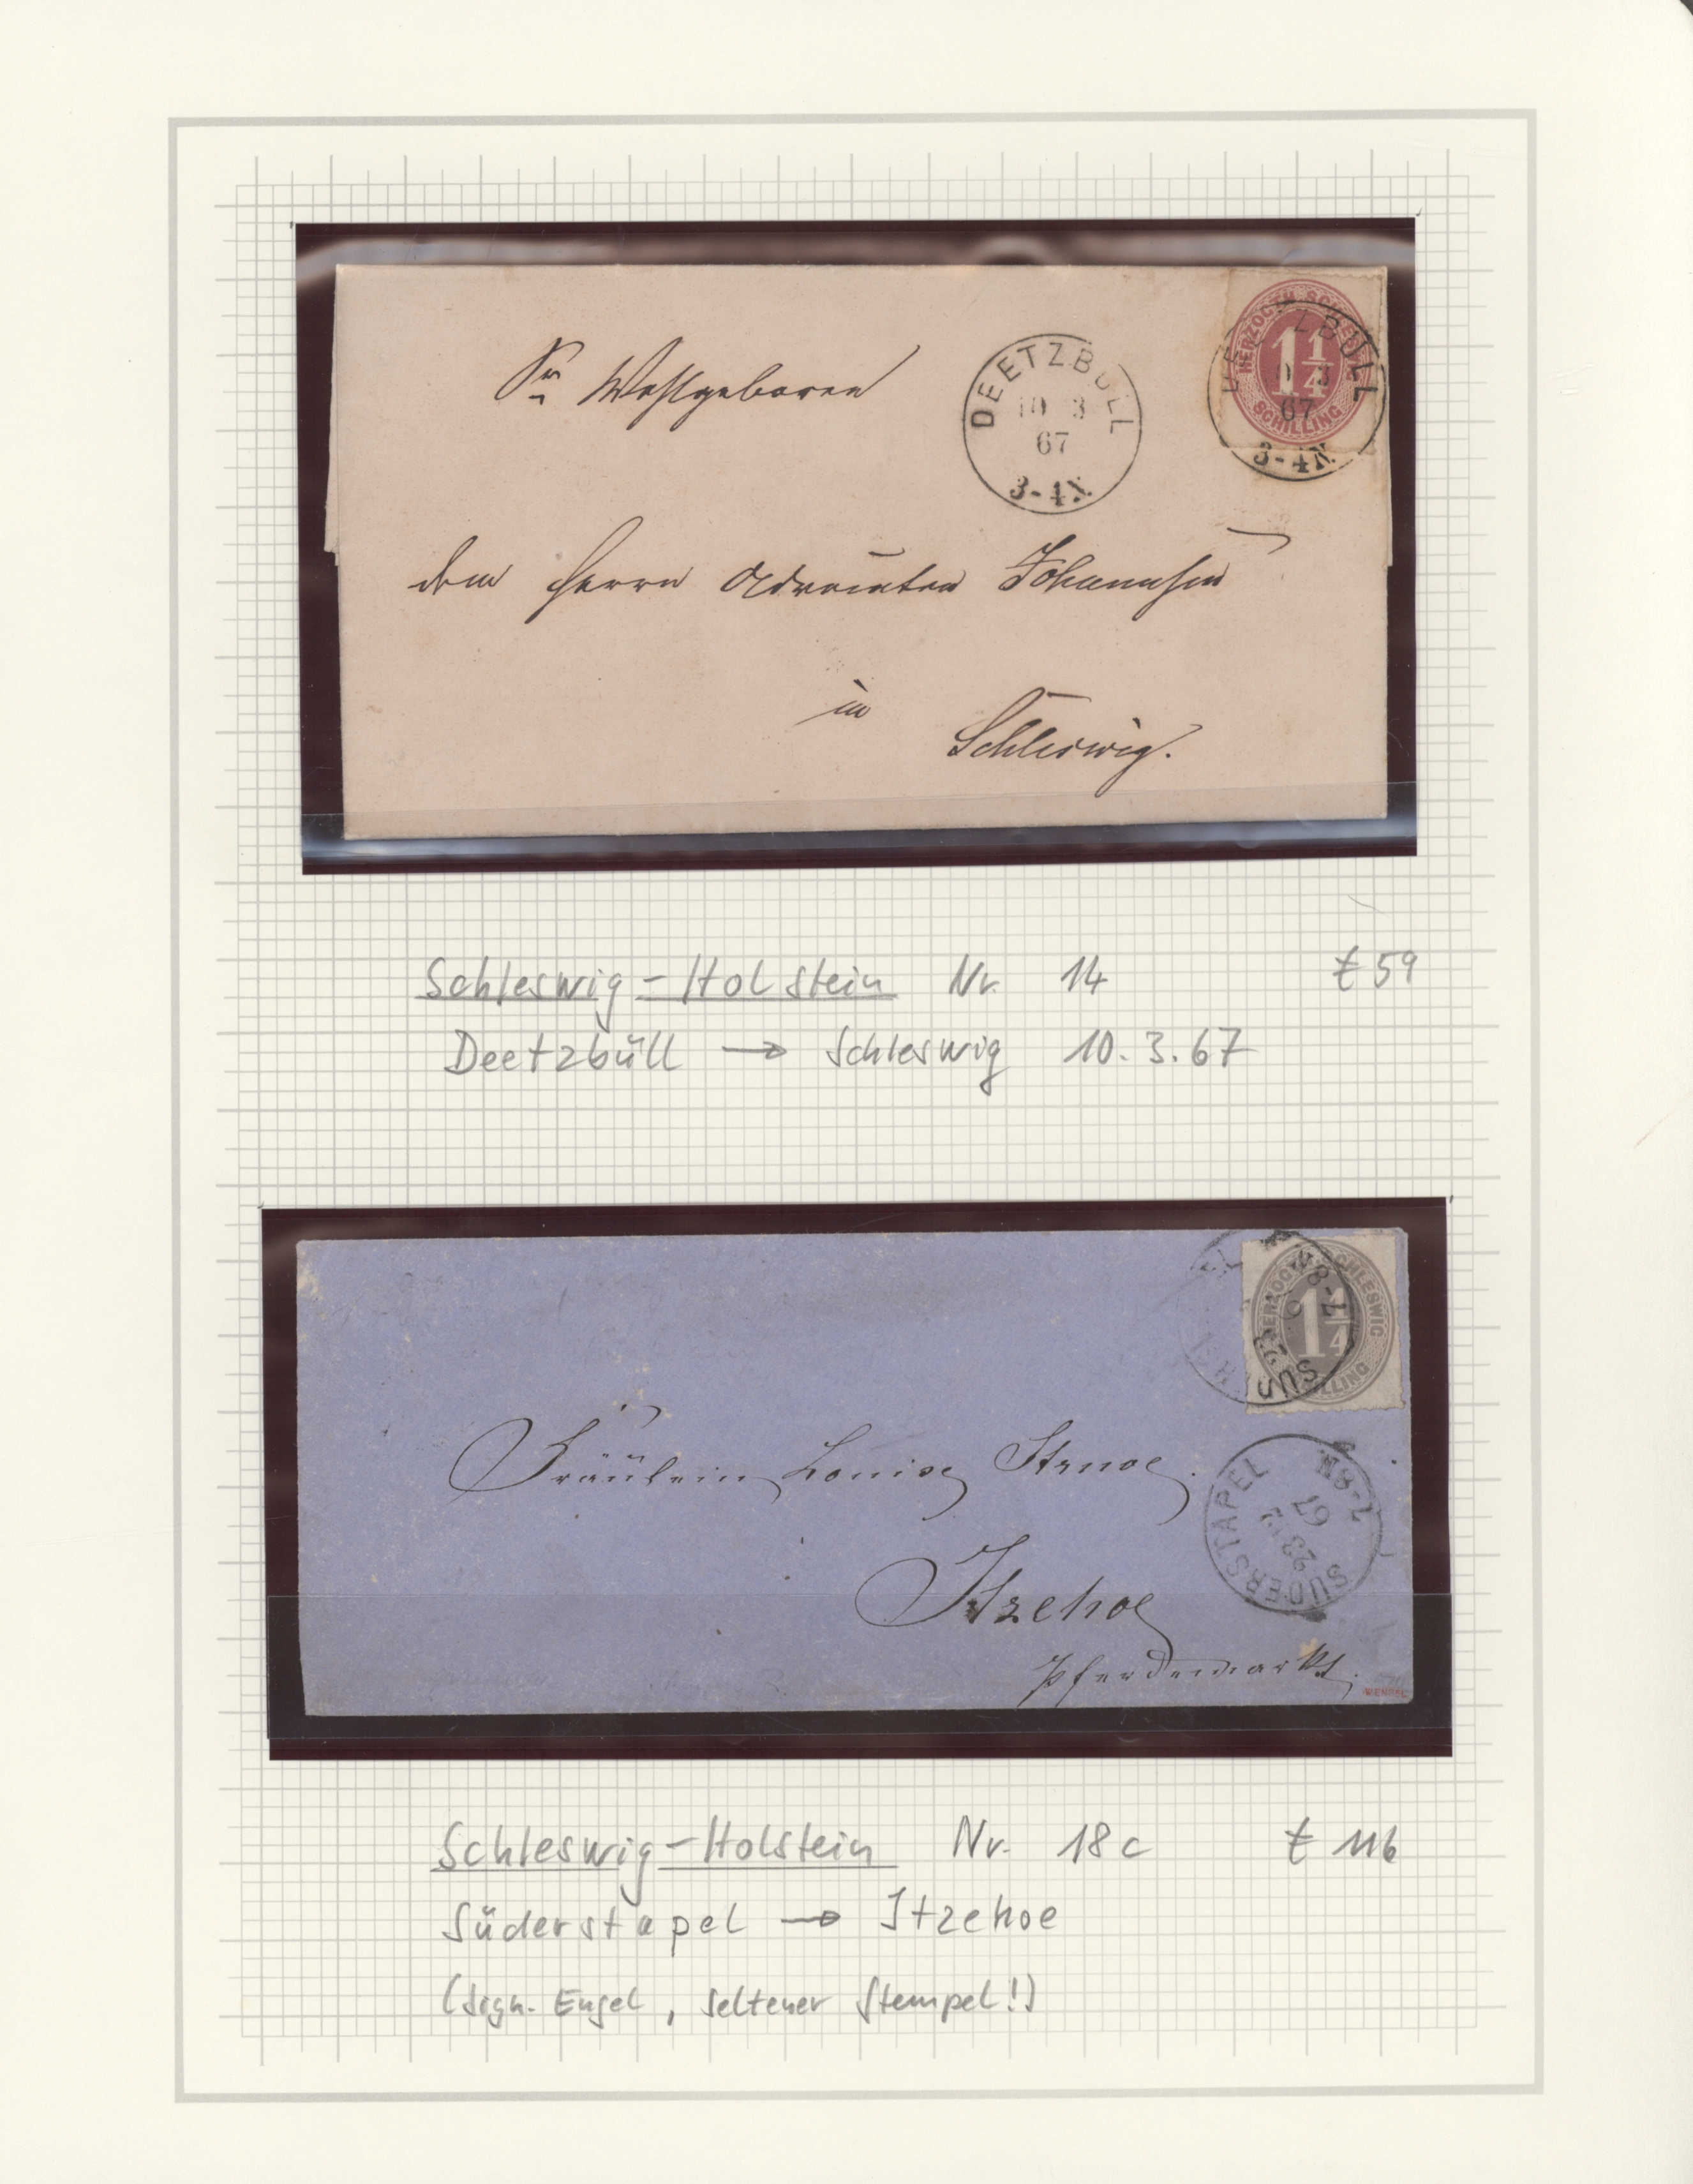 HERZOGTH. SCHLESWIG
1 1/4
SCHILLING
DEETZBÜLL
10 3
67
3-4N.
DEETZBÜLL
10 3
67
3-4N.
Sr Wohlgeboren
dem Herrn Advocaten Johannsen
in
Schleswig.
Schleswig-Holstein Nr. 14
59
Deetzbüll → Schleswig 10.3.67
HERZOGTH. SCHLESWIG
1 1/4
SCHILLING
Fräulein Louise Struve.
SÜDERSTAPEL
67
7-8N
Itzehoe
Pferdemarkt.
Schleswig-Holstein Nr. 18c
116
Süderstapel → Itzehoe
(sign. Engel, seltener Stempel!)